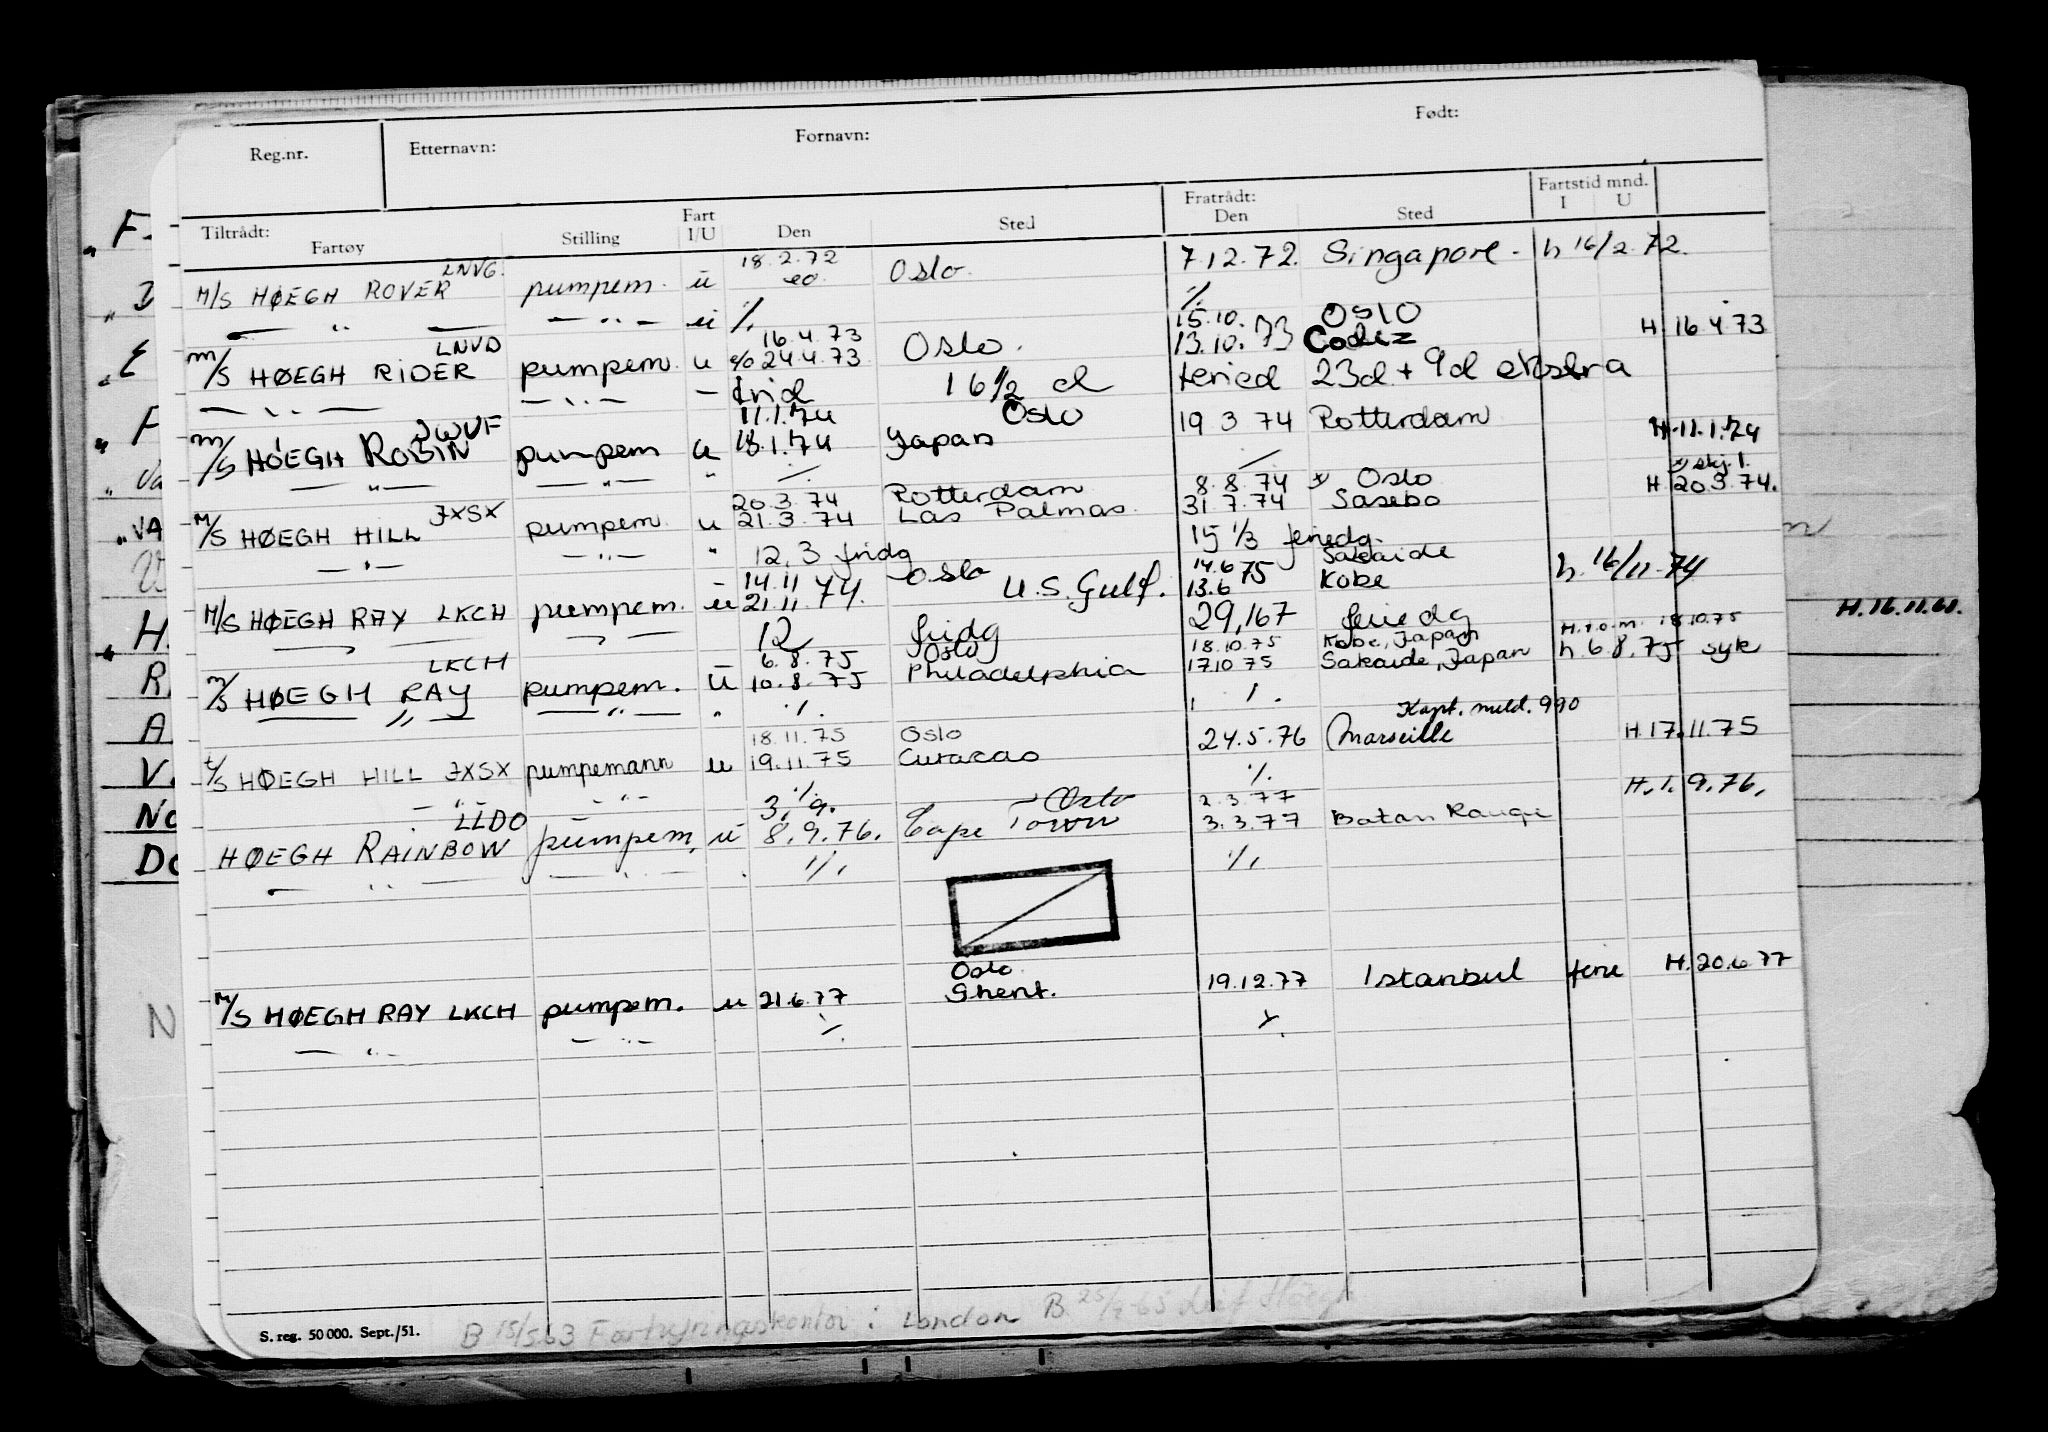 Reg.nr. Etternavn: Fornavn: Født:
Tiltrådt: Fratrådt: Fartstid mnd.
Fartøy Stilling Fart I/U Den Sted Den Sted I U
LNVG. 18.2.72
M/S HØEGH ROVER pumpem. u Oslo. 7.12.72. Singapore - h 16/2.72.
— " — — " — u ·/. ·/.
LNVD 16.4.73 15.10. OSLO
M/S HØEGH RIDER pumpem. u 24.4.73 Oslo. 13.10.73 Codiz H 16.4.73
— " — — " — — frid 16 1/2 d feried 23d + 9d ekstra
JWUF 11.1.74 Oslo
M/S HØEGH ROBIN pumpem u 18.1.74 Japan 19 3 74 Rotterdam H.11.1.74
— " — — " — " ·/. ·/.
JXSX 20.3.74 Rotterdam 8.8.74 x Oslo x) skj. 1.
M/S HØEGH HILL pumpem u 21.3.74 Las Palmas. 31.7.74 Sasebo H 20.3.74.
— " — — " — " 12,3 fridg 15 1/3 feriedg.
14.11 Oslo 14.6 75 Sakaide
M/S HØEGH RAY LKCH pumpem. u 21.11.74. U.S. Gulf. 13.6 Kobe h. 16/11-74
— " — — " — 12 fridg 29,167 feriedg
LKCH 6.8.75 Oslo 18.10.75 Kobe, Japan H.t.o.m. 18.10.75
M/S HØEGH RAY pumpem. u 10.8.75 Philadelphia 17.10 75 Sakaide, Japan h.6.8.75 syk
— " — — " — " ·/. ·/.
18.11.75 Oslo Kapt. meld. 990
t/S HØEGH HILL JXSX pumpemann u 19.11.75 Curacao 24.5.76 Marseille H.17.11.75
— " — — " — ·/. ·/.
LLDO 3.9. Oslo 2.3.77 H.1.9.76.
HØEGH RAINBOW pumpem. u 8.9.76. Cape Town 3.3.77 Batan Rouge
— " — — " — ·/. ·/.
Oslo
M/S HØEGH RAY LKCH pumpem. u 21.6.77 Ghent. 19.12.77 Istanbul ferie H.20.6.77
— " — — " — ·/. ·/.
S. reg. 50 000. Sept./51.
B 15/5.63 Forhyringskontor i London B 25/2-65 Leif Höegh
F
E
F
Va
VA
H.
H.16.11.61.
R
A
V
No
Do
N